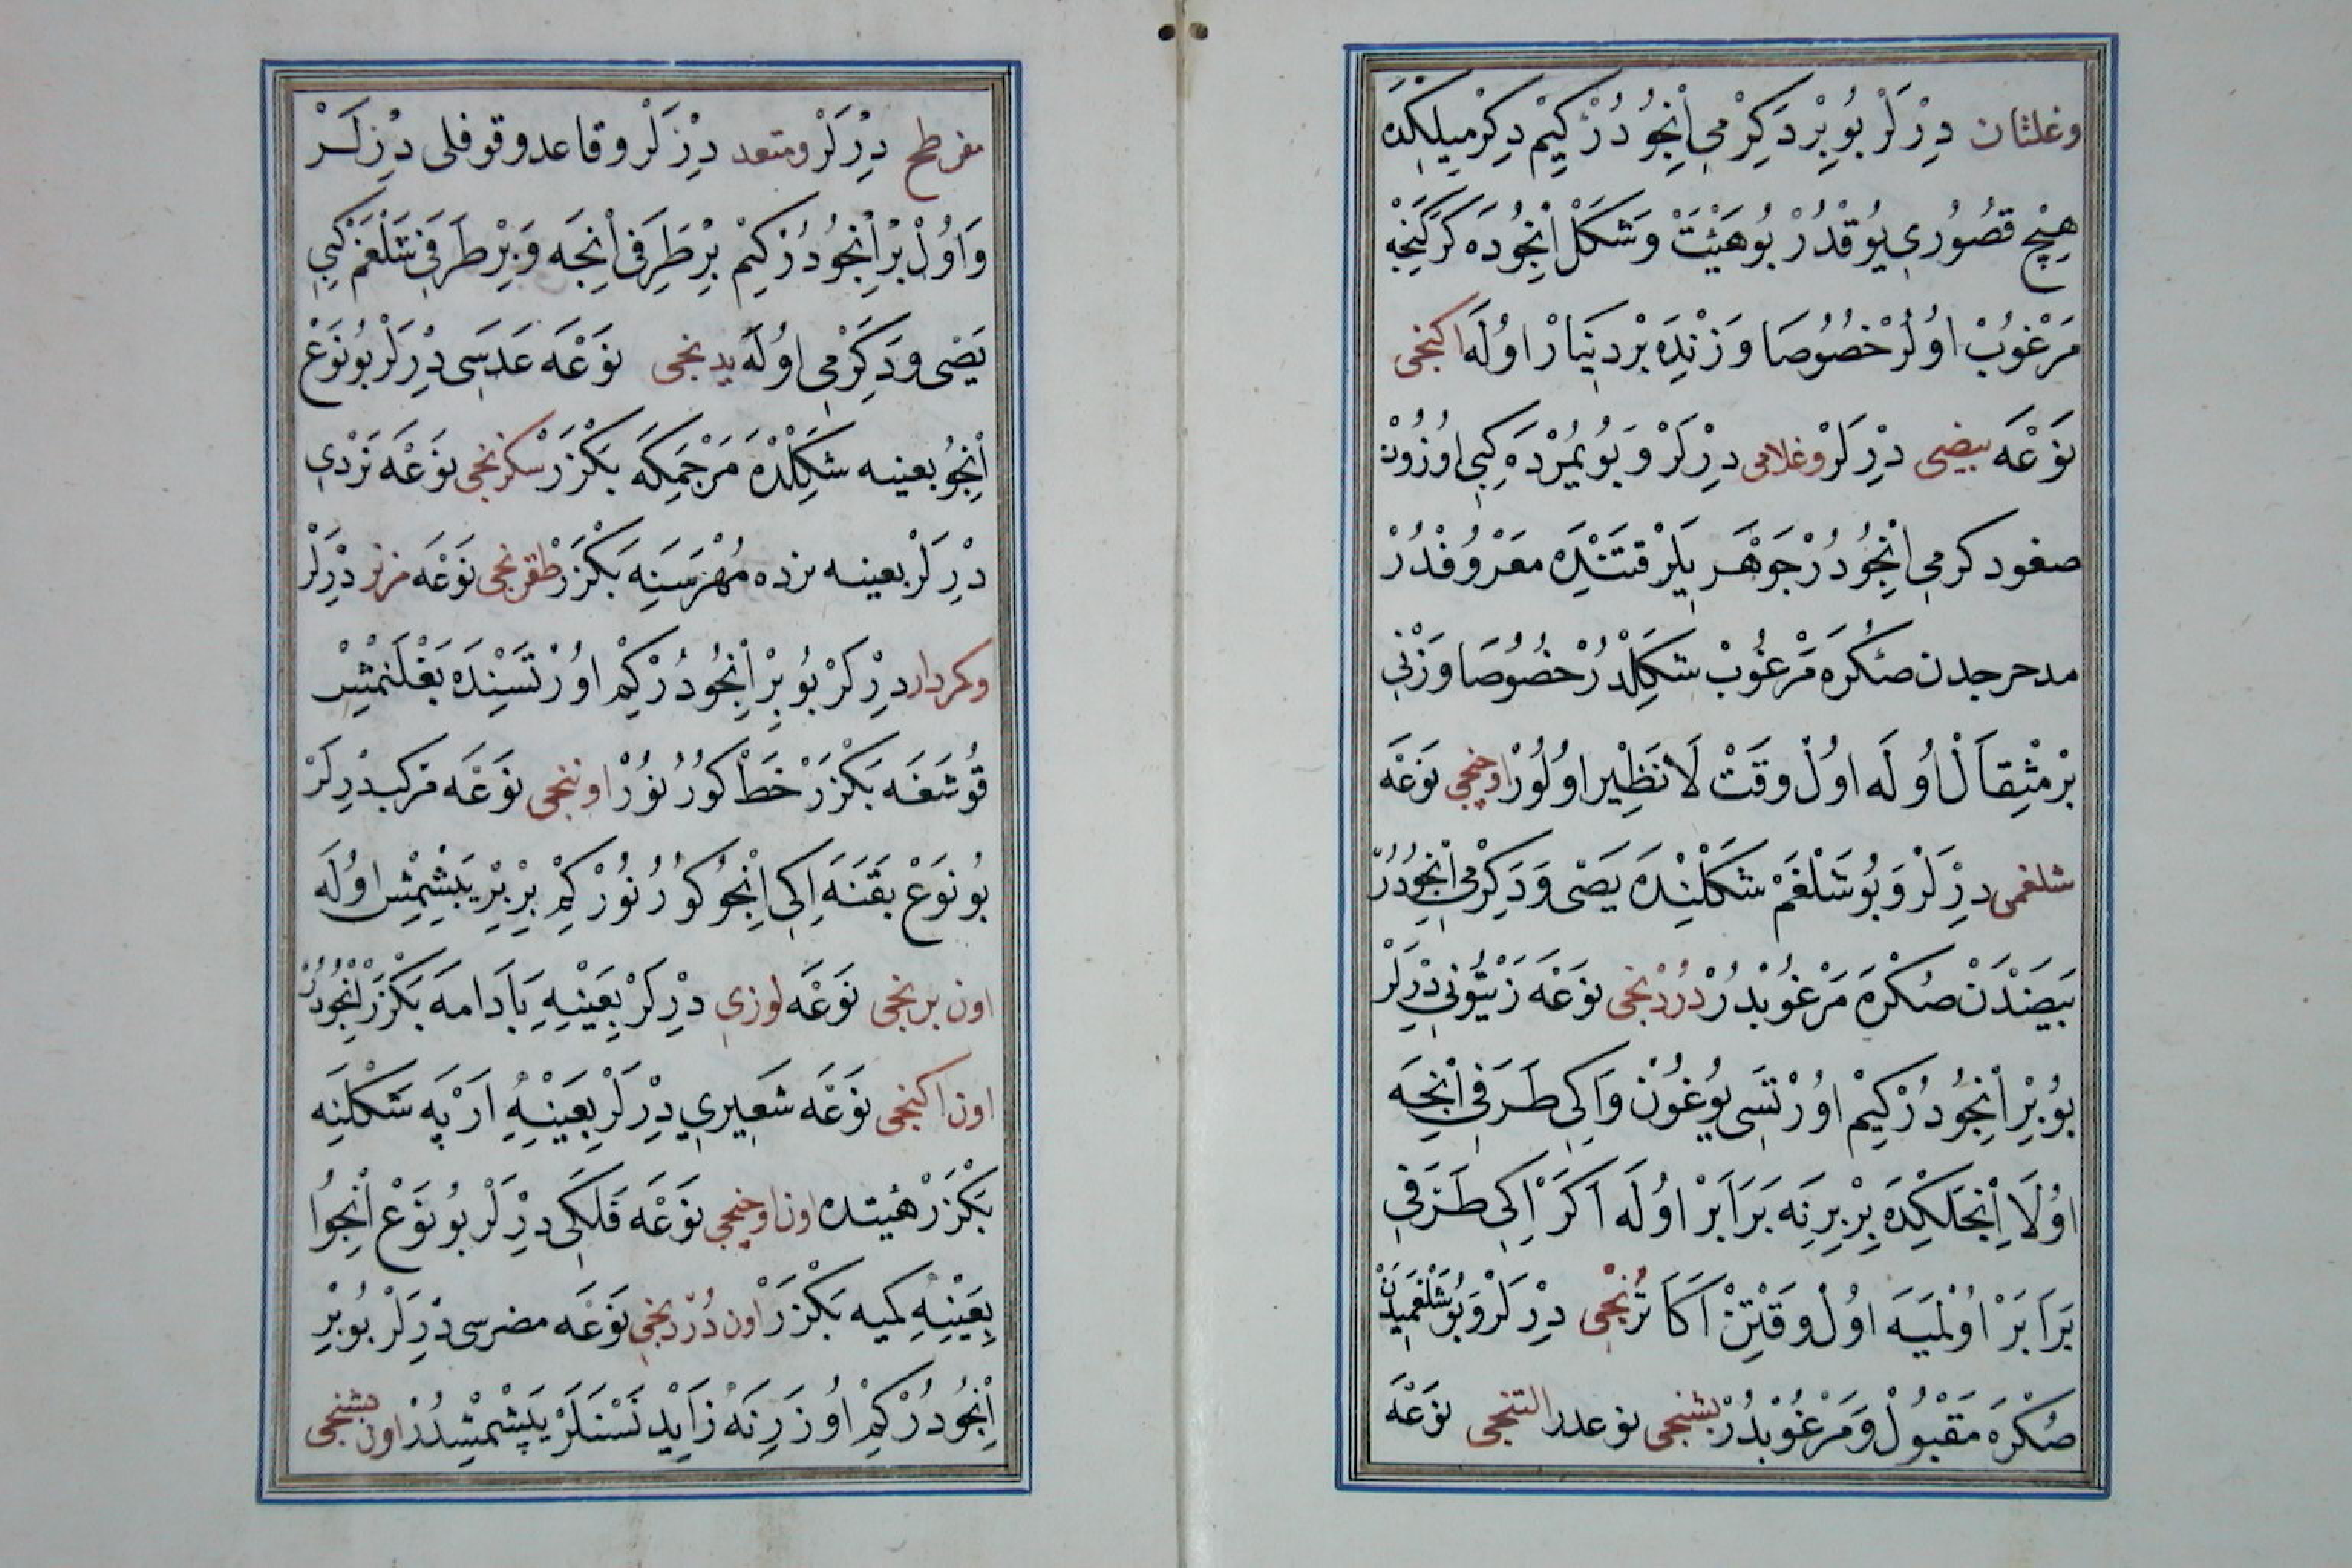 وغلثان دِرْلَرْ بُوبِرْ دَكِرْمِي اِنْجُودُرْ كِيمْ دِكِرْمِيلِكْدَه
هِيچْ قُصُورِي يُوقْدُرْ بُوهَيْئَتْ وَشَكَلْ اِنْجُودَه كَرَكِنْجَه
مَرْغُوبْ اُولُرْ خُصُوصَا وَزْنِدَه بْردِينَارْ اُولَه اكنجى
نَوْعَه بيضى دِرْلَرْ وغلامى دِرْلَرْ وَبُو يُمُرْدَه كِبِي اُوزُونْ
صغود كرمِي اِنْجُودُرْ جَوْهَر بِلِرْ قَتَنْدَه مَعْرُوفْدُرْ
مدحرجدن صُكْرَه مَرْغُوبْ شَكِلْدُرْ خُصُوصَا وَزْنِي
بْرمِثْقَالْ اُولَه اُولْ وَقَتْ لَانَظِيْر اُولُورْ اوچنجى نَوْعَه
شلغمى دِرْلَرْ وَبُو شَلْغَمْ شَكَلْنِدَه يَصّى وَدَكِرْمِي اِنْجُودُرْ
بَيضَدَنْ صُكْرَه مَرْغُوبْدُرْ دُرْدنجى نَوْعَه زَيْتُونِي دِرْلَرْ
بُوبِرْ اِنْجُودُرْ كِيمْ اُورْتَسِى يُوغُونْ وَاِكِي طَرَفِي اِنْجَه
اُولَا اِنْجَلِكْدَه بِرْبِرِنَه بَرَابَرْ اُولَه اَكَرْ اِكِي طَرَفِي
بَرَابَرْ اُولْمَيَه اُولْ وَقْتِنْ اَكَا تُرُنْجِى دِرْلَرْ وَبُو شَلْغَمِيدَنْ
صُكْرَه مَقْبُولْ وَمَرْغُوبْدُرْ بشنجى نوعدر التنجى نَوْعَه
مفرطح دِرْلَرْ ومتعد دِرْلَرْ وقاعد وقوقلى دِرْلَرْ
وَاُولْ بْر اِنْجُودُرْ كِيمْ بِرْ طَرَفِي اِنْجَه وَبِرْ طَرَفِي شَلْغَمْ كِبِي
يَصّى وَدَكِرْمِي اُولَه يدنجى نَوْعَه عَدَسِى دِرْلَرْ بُونَوْعْ
اِنْجُو بعينه شَكِلْدَه مَرْجَمَكَه بَكْزَرْ سكزنجى نَوْعَه نَرْدِي
دِرْلَرْ بعينه نرده مُهْرَسِنَه بَكْزَرْ طقزنجى نَوْعَه مزنر دِرْلَرْ
وكمردار دِرْلَرْ بُوبِرْ اِنْجُودُرْ كِمْ اُورْتَسِنْدَه بَغْلَنْمِشْ
قُوشَغَه بَكْزَرْ خَطْ كُورُنُورْ اوننجى نَوْعَه مركب دِرْلَرْ
بُونَوْعْ بَقَنَه اِكِي اِنْجُو كُورُنُورْ كِمْ بِرْبِرْ يَپِشْمِشْ اُولَه
اون برنجى نَوْعَه لوزى دِرْلَرْ بِعَيْنِهِ بَادَامه بَكْزَرْ اِنْجُودُرْ
اون اكنجى نَوْعَه شَعِيرِي دِرْلَرْ بِعَيْنِهِ اَرْپَه شَكَلْنَه
بَكْزَرْ هيئتده اون اوچنجى نَوْعَه فَلَكَى دِرْلَرْ بُونَوْعْ اِنْجُوا
بِعَيْنِهِ كميه بَكْزَرْ اون دُرْدنجى نَوْعَه مضرسى دِرْلَرْ بُوبِرْ
اِنْجُودُرْ كِمْ اُوزَرِنَه زَايِدْ نَسْنَلَرْ يَپِشْمِشْدُرْ اون بشنجى